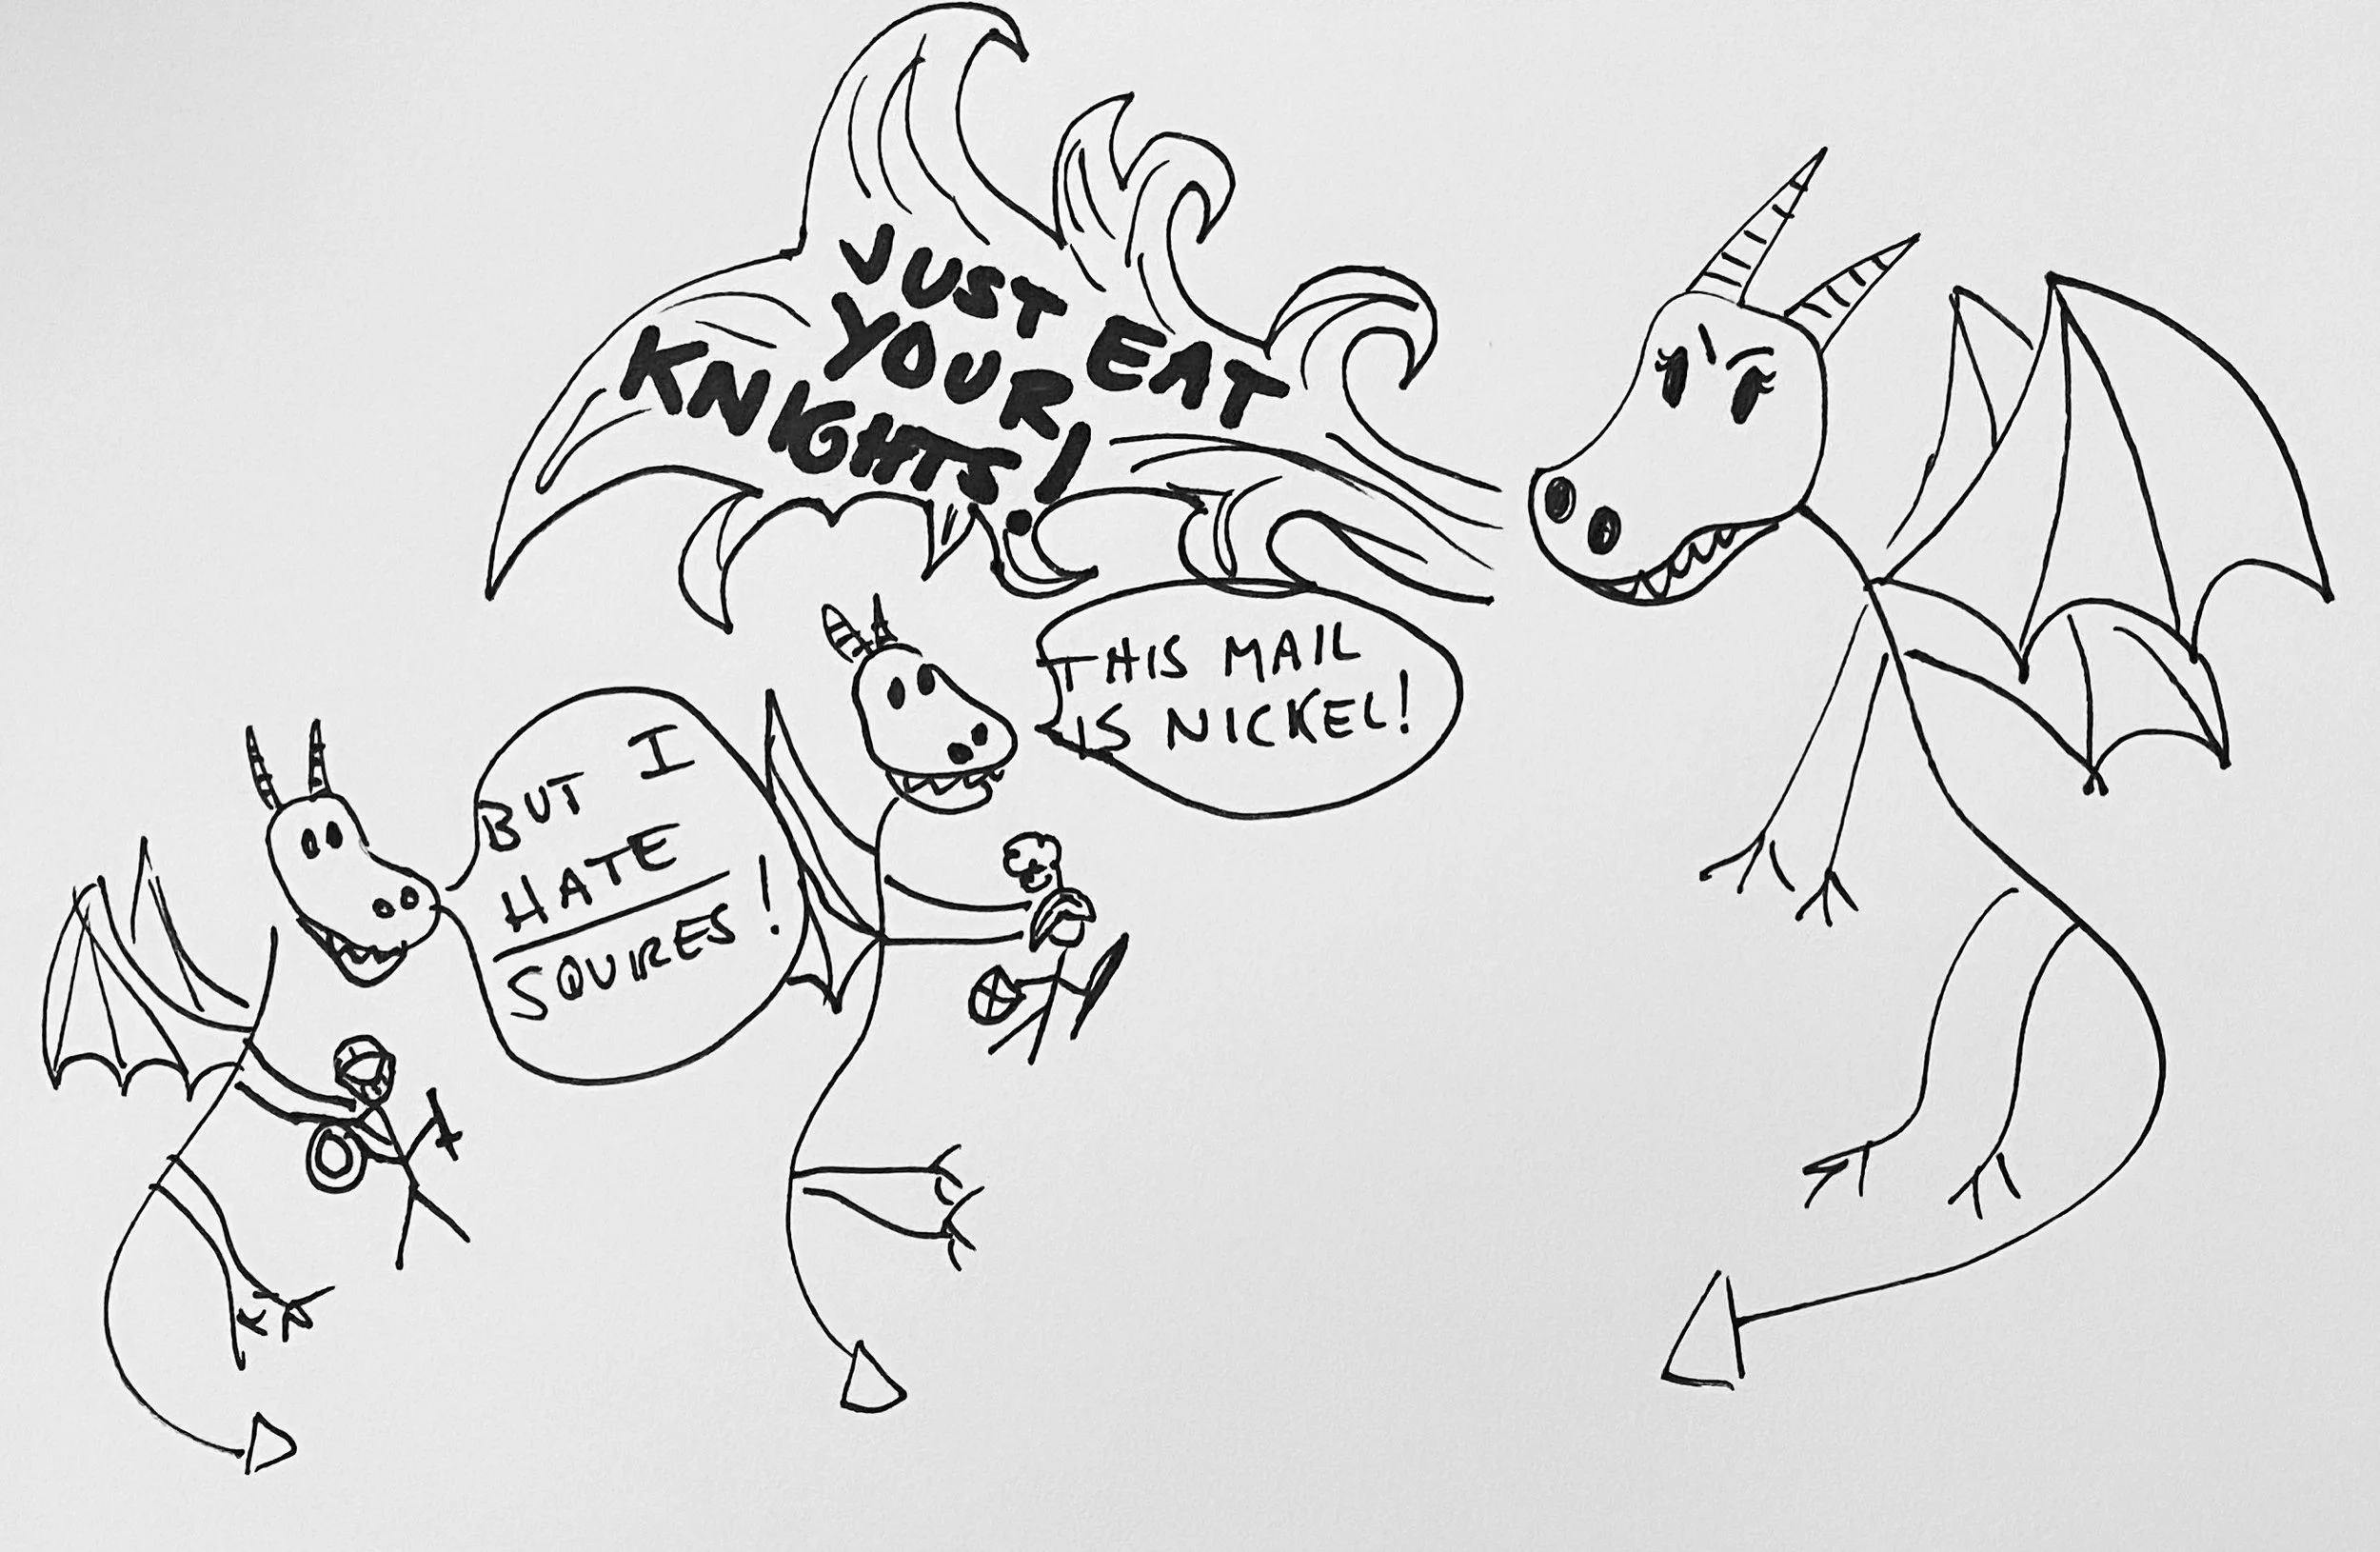 JUST EAT
YOUR
KNIGHTS!
THIS MAIL
IS NICKEL!
BUT I
HATE
SQUIRES!